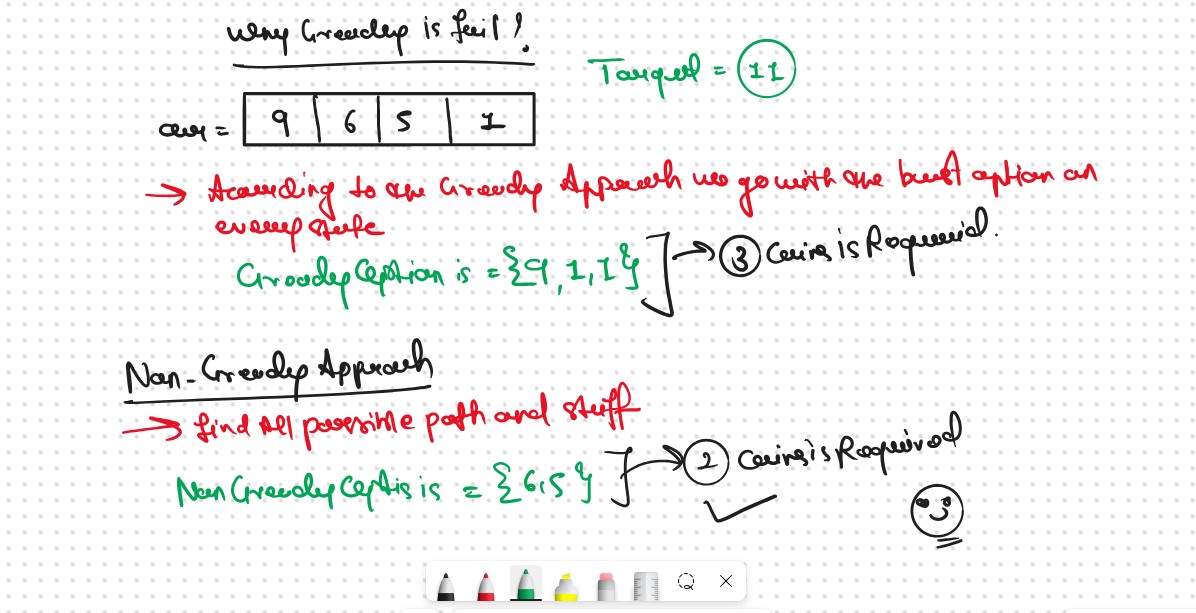 Why Greedy is fail?
Target = 11
arr = 9 6 5 1
→ According to the Greedy Approach we go with the best option on
every state
Greedy Option is = {9, 1, 1} ] → 3 Coins is Required.
Non-Greedy Approach
→ find All possible path and stuff
Non Greedy is = {6,5} ] → 2 Coins is Required